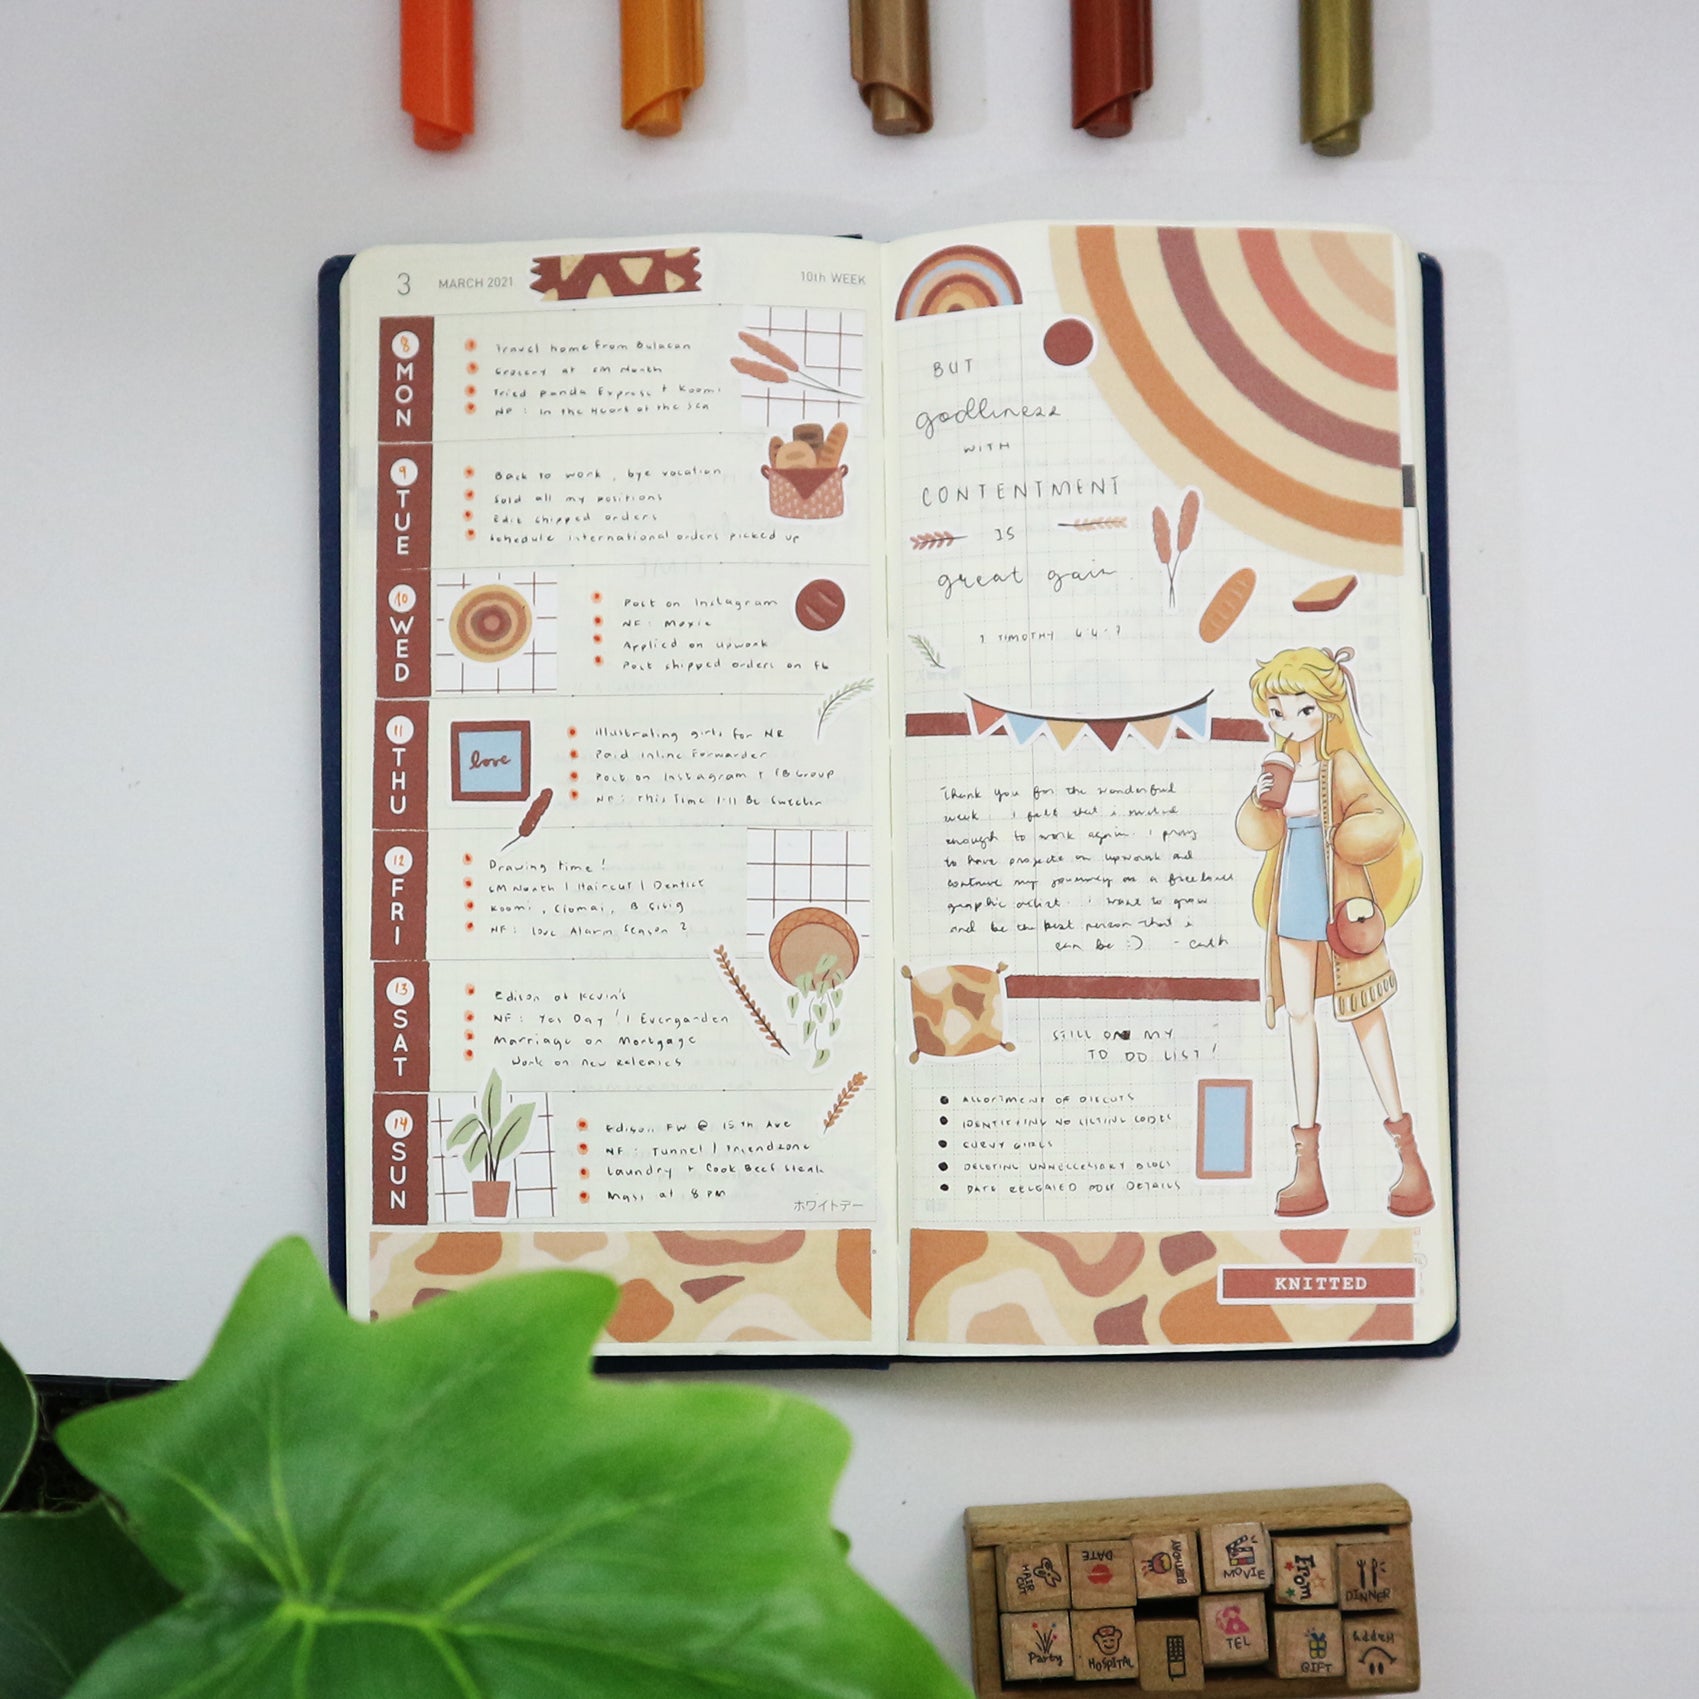 3 MARCH 2021 10th WEEK
8 MON
Travel home from Bulacan
Grocery at SM North
Tried Panda Express + Koomi
NF: In the Heart of the Sea
9 TUE
Back to work, bye vacation
Sold all my positions
Edit shipped orders
Schedule international orders picked up
10 WED
Post on Instagram
NF: Moxie
Applied on upwork
Post shipped orders on fb
11 THU
love
Illustrating girls for NR
Paid Inline Forwarder
Post on Instagram + FB Group
NF: This Time I'll Be Sweeter
12 FRI
Drawing time!
SM North | Haircut | Dentist
Koomi, Siomai, B Sisig
NF: Love Alarm Season 2
13 SAT
Edison at Kevin's
NF: Yes Day! | Evergarden
Marriage or Mortgage
Work on new releases
14 SUN
Edison FW @ 15th Ave
NF: Tunnel | Friendzone
Laundry + Cook Beef Steak
Mass at 8 PM
ホワイトデー
BUT
godliness
WITH
CONTENTMENT
IS
great gain
1 TIMOTHY 6:6-7
Thank you for the wonderful
week. I felt that i
enough to work again. I pray
to have projects on upwork and
continue my journey as a freelance
graphic artist. i want to grow
and be the best person that i
can be :) - Cath
STILL ON MY
TO DO LIST!
ASSORTMENT OF DIECUTS
IDENTIFYING NO LISTING CODES
CURVY GIRLS
DELETING UNNECESSARY BLOGS
DATE RELEASED POST DETAILS
KNITTED
HAIR CUT
DATE
BIRTHDAY
MOVIE
From
DINNER
Party
HOSPITAL
TEL
GIFT
Happy